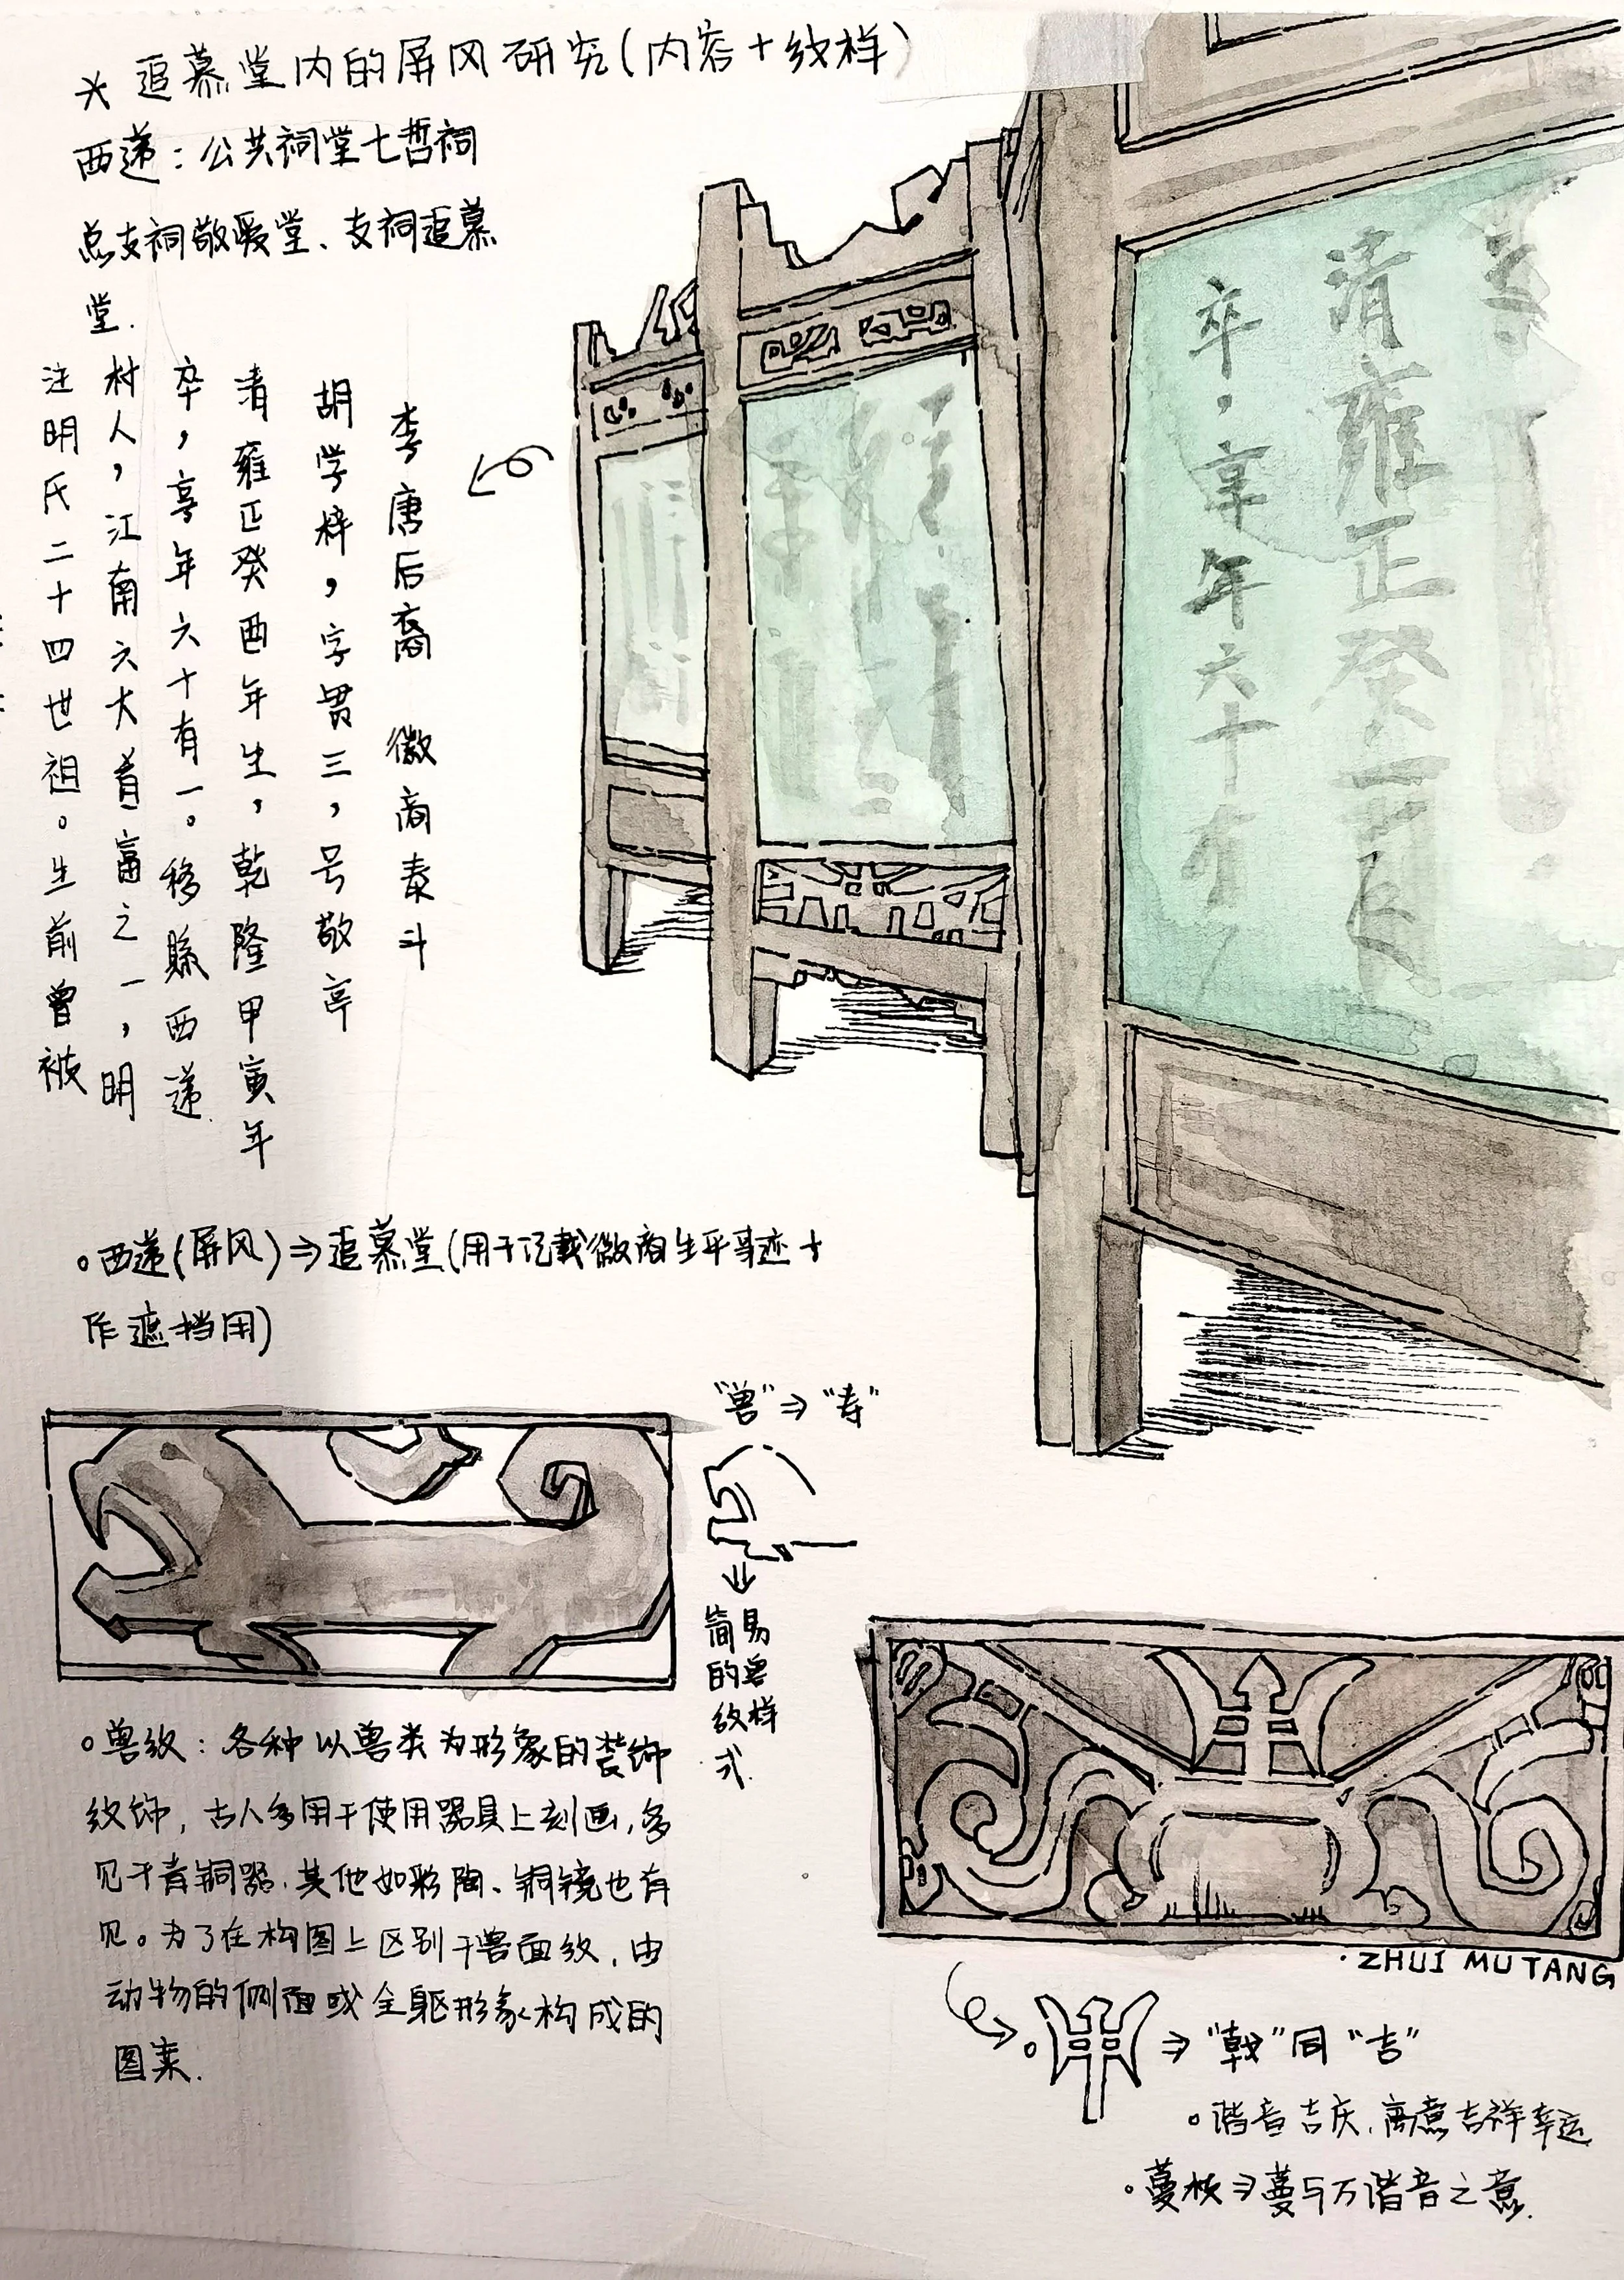 * 追慕堂内的屏风研究(内容+纹样)
西递:公共祠堂七哲祠
总支祠敬爱堂、支祠追慕
堂.
李唐后裔 徽商泰斗
胡学梓,字贯三,号敬亭
清雍正癸酉年生,乾隆甲寅年
卒,享年六十有一。移縣西递
村人,江南六大首富之一,明
注明氏二十四世祖。生前曾被
清雍正癸
卒,享年六十有
。西递(屏风)⇒追慕堂(用于记载徽商生平事迹+
作遮挡用)
"兽"⇒"寿"
简易
的兽
纹样
式.
。兽纹:各种以兽类为形象的装饰
纹饰,古人多用于使用器具上刻画,多
见于青铜器.其他如彩陶、铜镜也有
见。为了在构图上区别于兽面纹,由
动物的侧面或全躯形象构成的
图案.
·ZHUI MU TANG
⇒"戟"同"吉"
。谐音吉庆,寓意吉祥幸运
。蔓枝⇒蔓与万谐音之意.